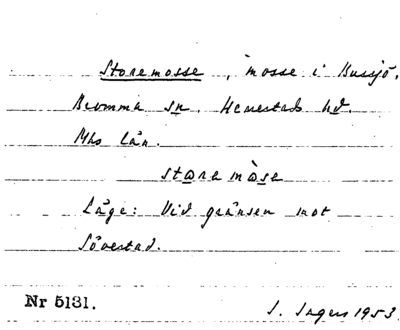 Storemosse, mosse i Bussjö,
Bromma sn. Herrestads hd.
Mhs län.
ståremåse
Läge: Vid gränsen mot
Sövestad.
Nr 5131.
1953.